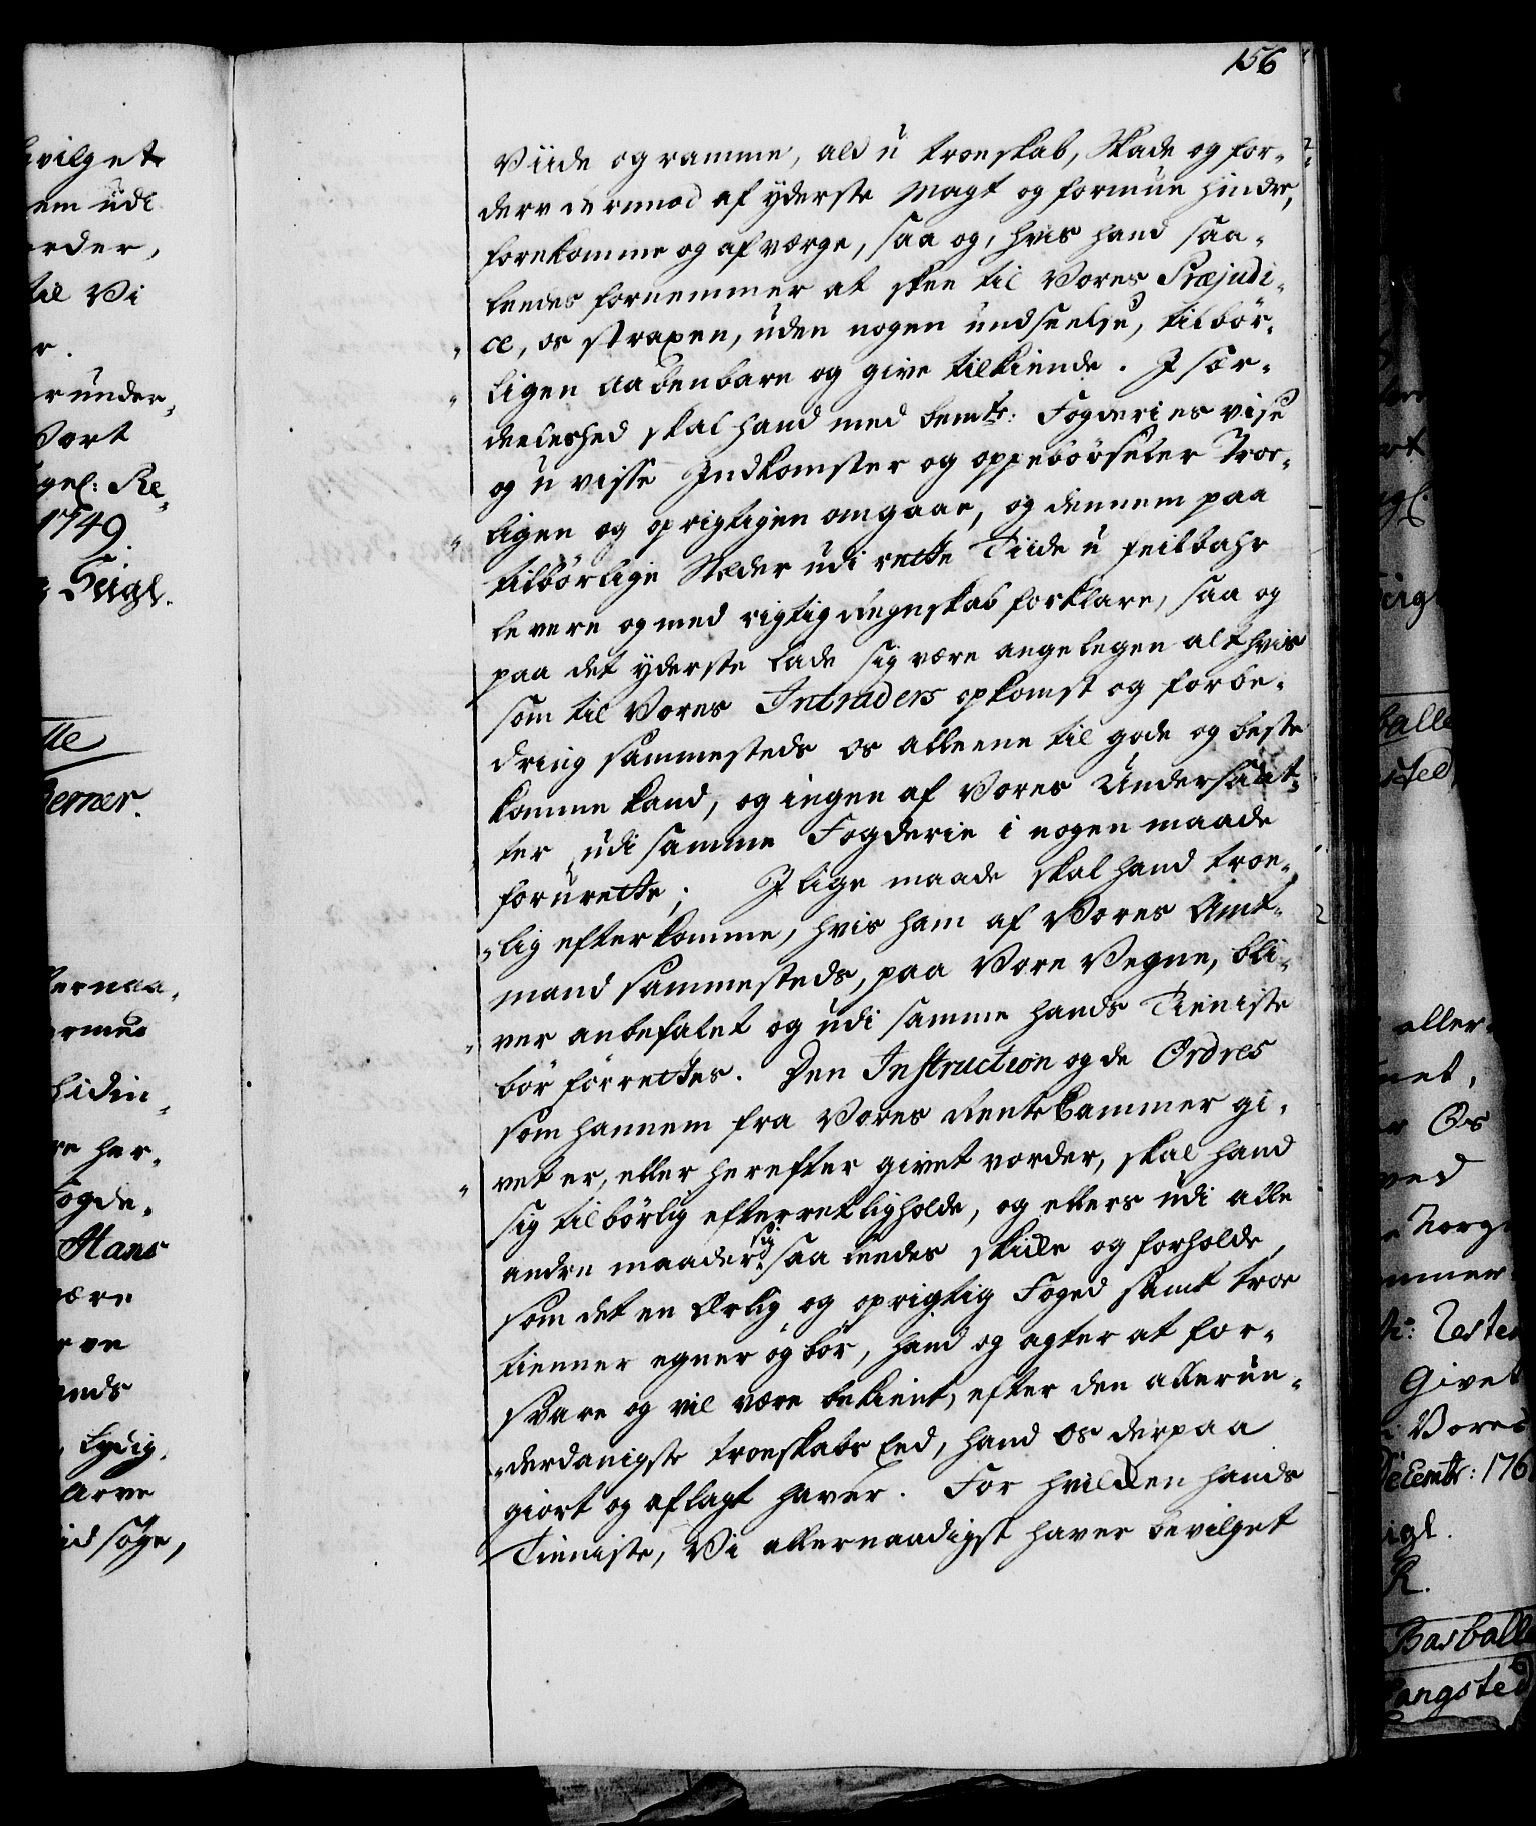 156
Viide og ramme, ald u troeskab, Skade og for-
derv dermod af yderste Magt og formue hindre,
forekomme og afværge, saa og, hvis hand saa-
ledes fornemmer at skee til Vores Præjudi-
ce, os straxen, uden nogen undseelse, tilbør-
ligen aabenbare og give tilkiende. I sær-
deeleshed skal hand med bemte: Fogderies vise
og u visse Indkomster og oppebørseler Troe-
ligen og oprigtigen omgaae, og dennem paa
tilbørlige Stæder udi rette Tiide u feilbahr
levere og med rigtig Regnskab forklare, saa og
paa det yderste lade sig være angelegen alt hvis
som til Vores Intraders opkomst og forbe-
dring sammesteds os alleene til gode og beste
komme kand, og ingen af Vores Undersaat-
ter udi samme Fogderie i nogen maade
forurette; I lige maade skal hand troe-
lig efterkomme, hvis ham af Vores Amt-
mand sammesteds, paa Vore Vegne, bli-
ver anbefalet og udi samme hands Tieniste
bør forrettes. Den Instruction og de Ordres
som hannem fra Vores Rentekammer gi-
vet er, eller herefter givet vorder, skal hand
sig tilbørlig efterretligholde, og ellers udi alle
andre maader sig saa ledes skikke og forholde,
som det en Ærlig og oprigtig Foged samt troe
tienner egner og bør, hand og agter at for-
svare og vil være bekient, efter den allerun-
derdanigste troeskabs Eed, hand os derpaa
giort og aflagt haver. For hvilken hands
Tieniste, Vi allernaadigst haver bevilget
vilget
em udi
order,
til Vi
r.
r under,
Vort
Segl: Re
1749
Sigl.
tte
Berner.
lernaa,
ermue
lidin
re her,
Fogde,
Hans
være
ands
lydig,
arve
id søge,
balle
sted
aller
net,
Os
ved
Norge
mmer
Testes
Givet
Vores
Decembr: 176
igl.
R.
Basballe
Langsted